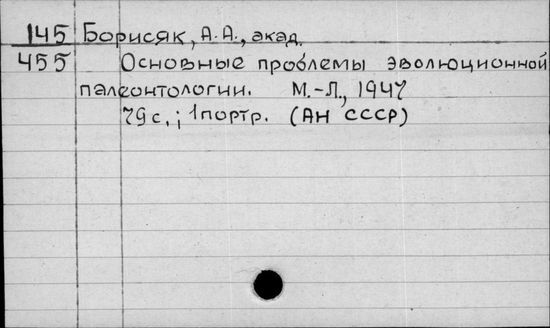 145 Борисяк, А.А., акад.
455 Основные проблемы эволюционной
палеонтологии. М.-Л., 1947
79с., 1портр. (АН СССР)